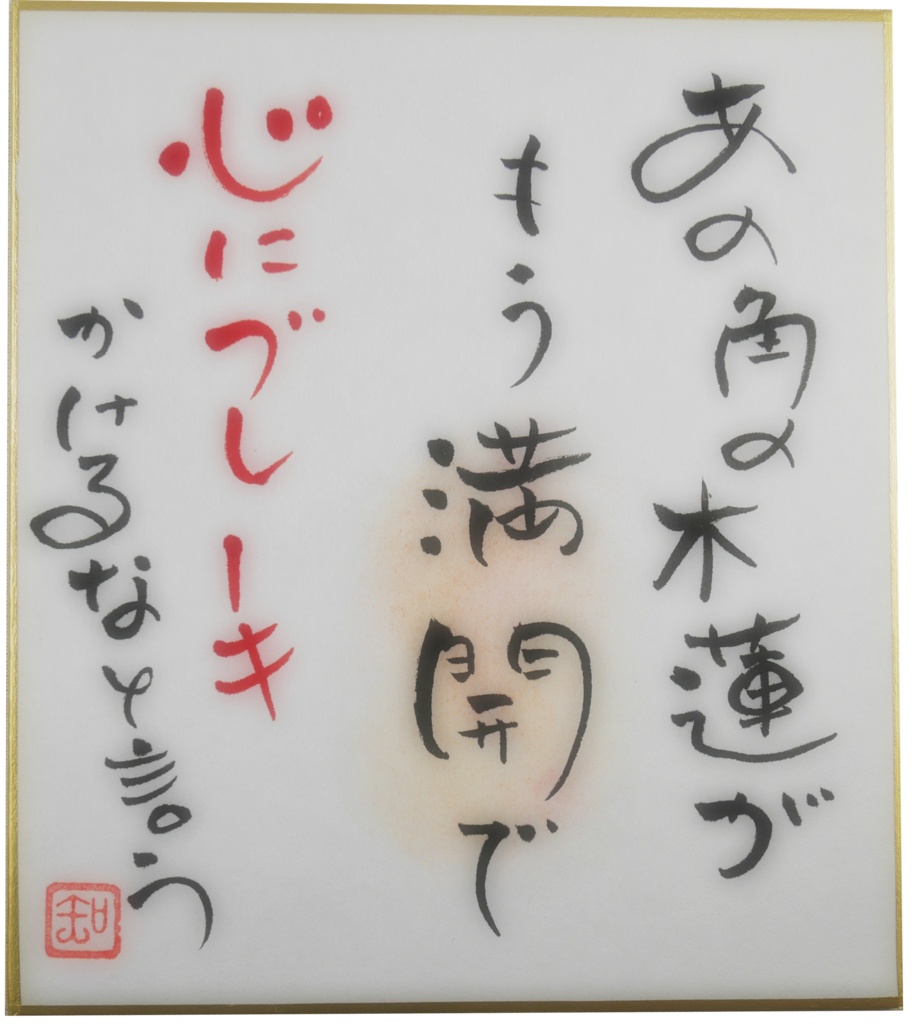 あの角の木蓮が
もう満開で
心にブレーキ
かけるなと言う
知